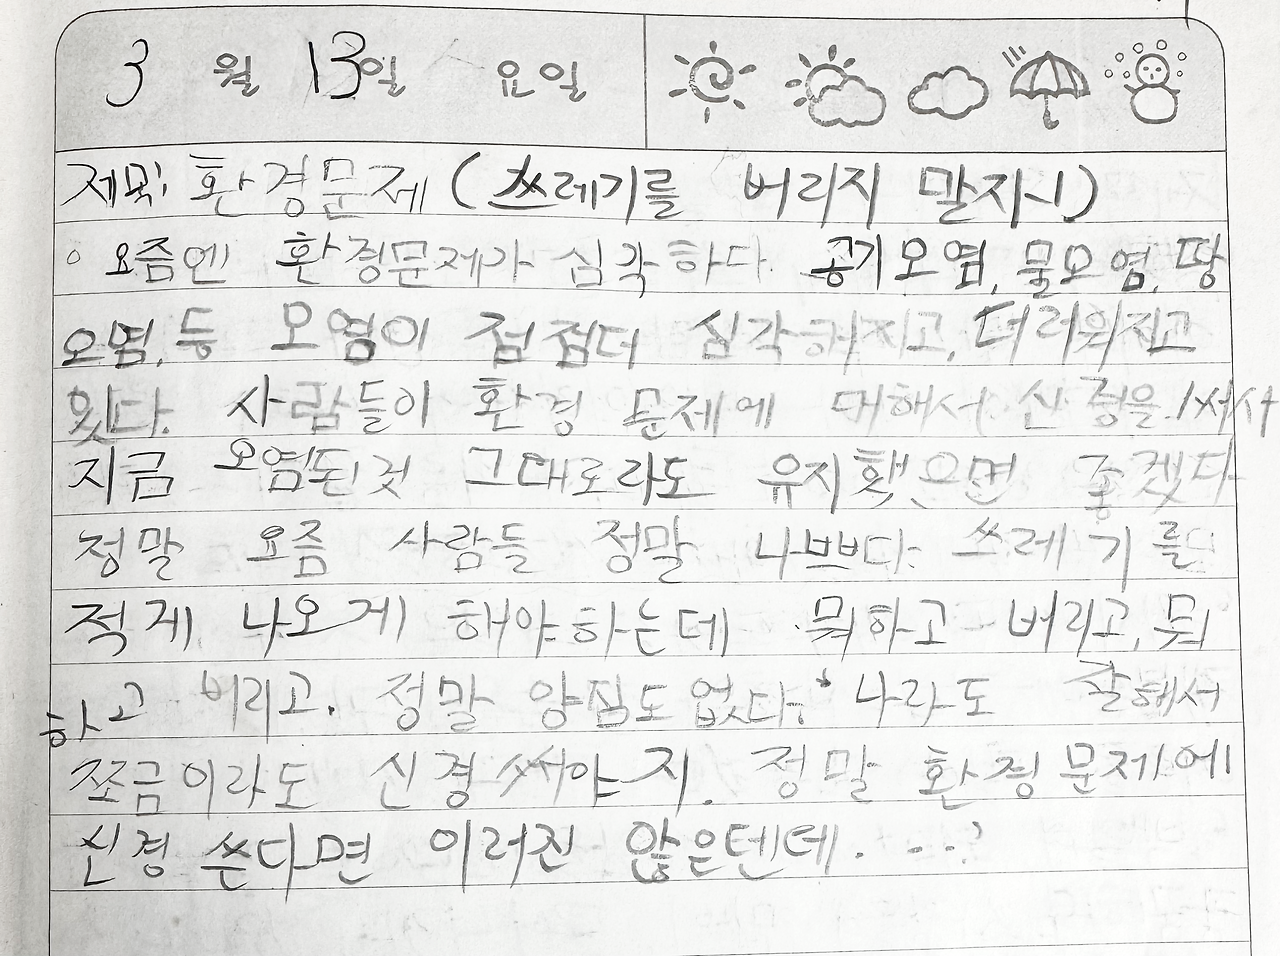 3 월 13일 요일
제목: 환경문제 (쓰레기를 버리지 말자!)
요즘엔 환경문제가 심각하다. 공기오염, 물오염, 땅
오염, 등 오염이 점점더 심각해지고, 더러워지고
있다. 사람들이 환경 문제에 대해서 신경을 써서
지금 오염된것 그대로라도 유지했으면 좋겠다
정말 요즘 사람들 정말 나쁘다. 쓰레기를
적게 나오게 해야하는데 뭐하고 버리고, 뭐
하고 버리고. 정말 양심도 없다. 나라도 잘해서
쪼금이라도 신경써야지. 정말 환경문제에
신경 쓴다면 이러진 않은텐데. . . ?